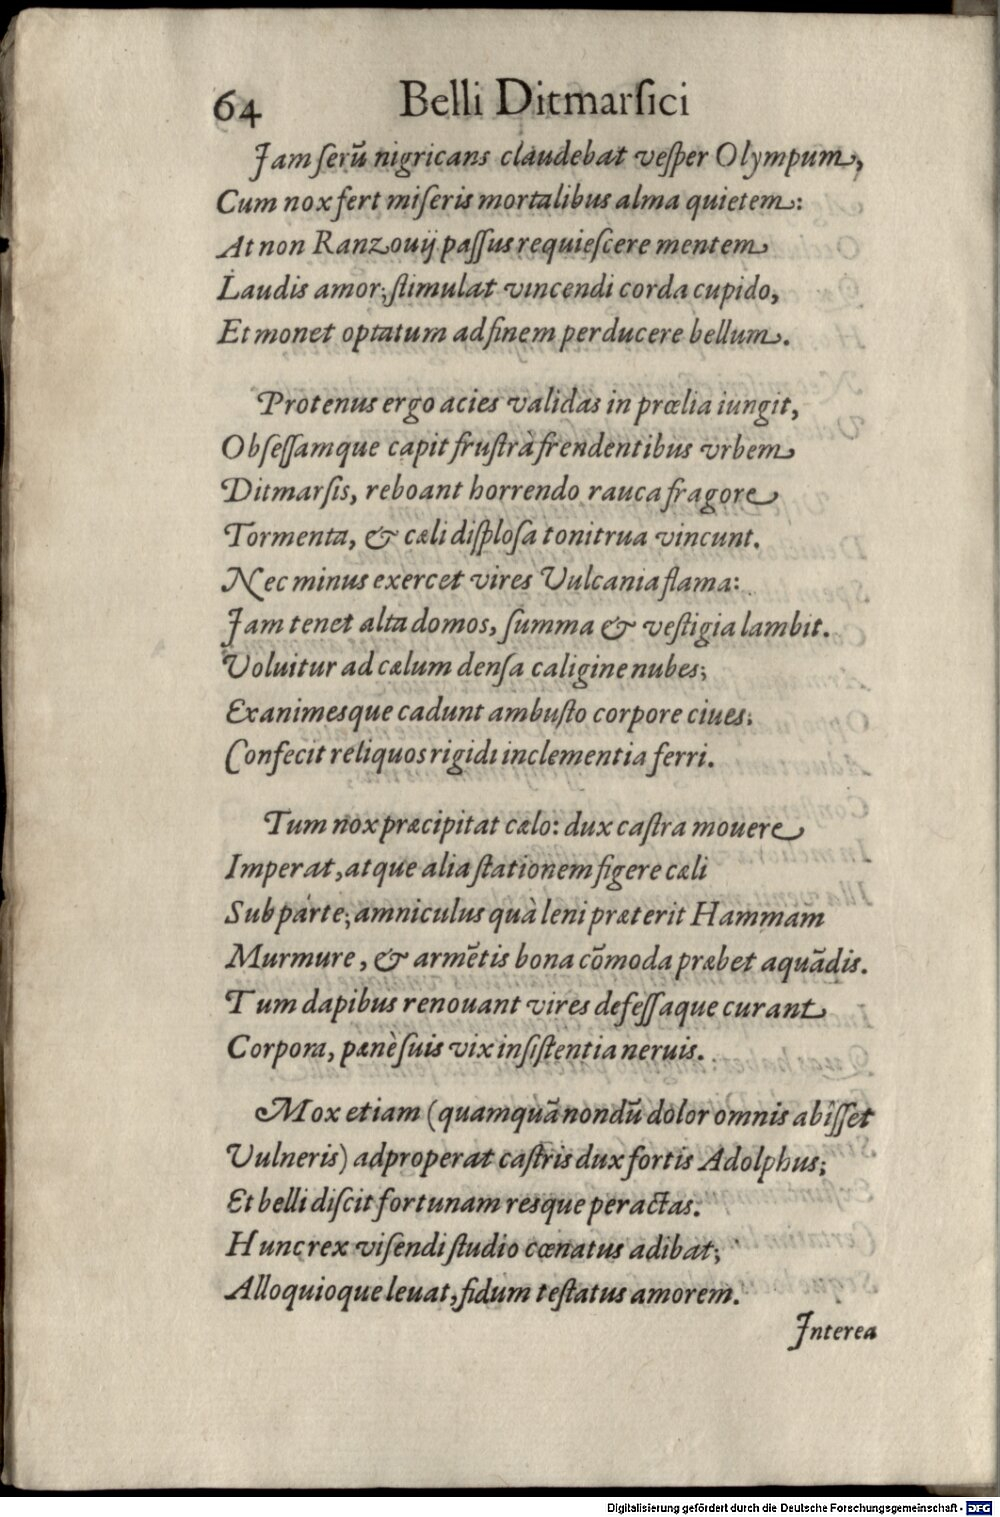 64 Belli Ditmarſici
Jam ſerũ nigricans claudebat veſper Olympum,
Cum nox fert miſeris mortalibus alma quietem:
At non Ranzouij paſſus requieſcere mentem
Laudis amor; ſtimulat vincendi corda cupido,
Et monet optatum ad finem perducere bellum.
Protenus ergo acies validas in prœlia iungit,
Obſeſſamque capit fruſtrà frendentibus vrbem
Ditmarſis, reboant horrendo rauca fragore
Tormenta, & cæli diſploſa tonitrua vincunt.
Nec minus exercet vires Vulcania flama:
Jam tenet alta domos, ſumma & veſtigia lambit.
Voluitur ad cælum denſa caligine nubes;
Exanimesque cadunt ambuſto corpore ciues;
Confecit reliquos rigidi inclementia ferri.
Tum nox præcipitat cælo: dux caſtra mouere
Imperat, atque alia ſtationem figere cæli
Sub parte; amniculus quà leni præterit Hammam
Murmure, & armẽtis bona cõmoda præbet aquãdis.
Tum dapibus renouant vires defeſſaque curant
Corpora, pænè ſuis vix inſiſtentia neruis.
Mox etiam (quamquã nondũ dolor omnis abiſſet
Vulneris) adproperat caſtris dux fortis Adolphus;
Et belli diſcit fortunam resque peractas.
Hunc rex viſendi ſtudio cœnatus adibat;
Alloquioque leuat, fidum teſtatus amorem.
Interea
Digitalisierung gefördert durch die Deutsche Forschungsgemeinschaft - DFG